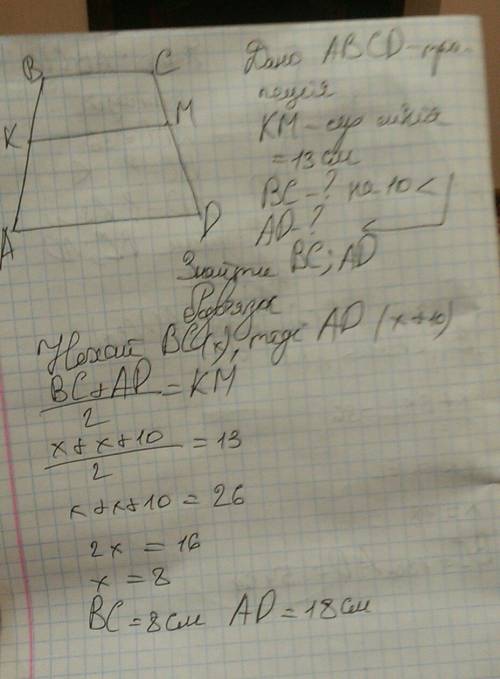 B C
K M
A D
Дано ABCD - тра-
пеція
KM - сер лінія
= 13 см
BC - ? на 10 <
AD - ?
Знайти BC; AD
Розвязок
Нехай BC(x), тоді AD (x+10)
BC+AD
2
= KM
x+x+10
2
= 13
x+x+10 = 26
2x = 16
x = 8
BC = 8см AD = 18см